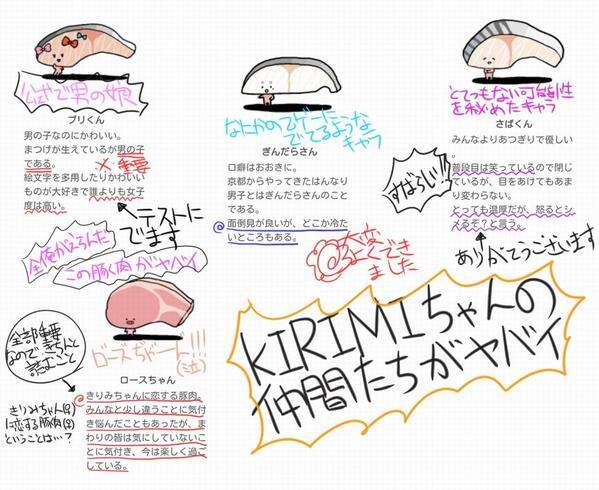 公式で男の娘
ブリくん
男の子なのにかわいい。
まつげが生えているが男の子
である。
×重要
絵文字を多用したりかわいい
ものが大好きで誰よりも女子
度は高い。
テストに
でます
なにかのゲームに
でてるような
キャラ
ぎんだらさん
口癖はおおきに。
京都からやってきたはんなり
男子とはぎんだらさんのこと
である。
面倒見が良いが、どこか冷た
いところもある。
大変
よくでき
ました
とてつもない可能性
を秘めたキャラ
さばくん
みんなよりあつぎりで優しい
。
普段目は笑っているので閉じ
ているが、目をあけてもあま
り変わらない。
とっても温厚だが、怒るとシ
メるぞ?と言う。
すばらし!!
ありがとうございます
全俺がふるんだ
この豚肉がヤバイ
ロースちゃーん!!!
(泣)
ロースちゃん
きりみちゃんに恋する豚肉。
みんなと少し違うことに気付
き悩んだこともあったが、ま
わりの皆は気にしていないこ
とに気付き、今は楽しく過ご
している。
全部重要
なのできちんと
読むこと
きりみちゃん(♀)
に恋する豚肉(♀)
ということは…?
KIRIMIちゃんの
仲間たちがヤバイ